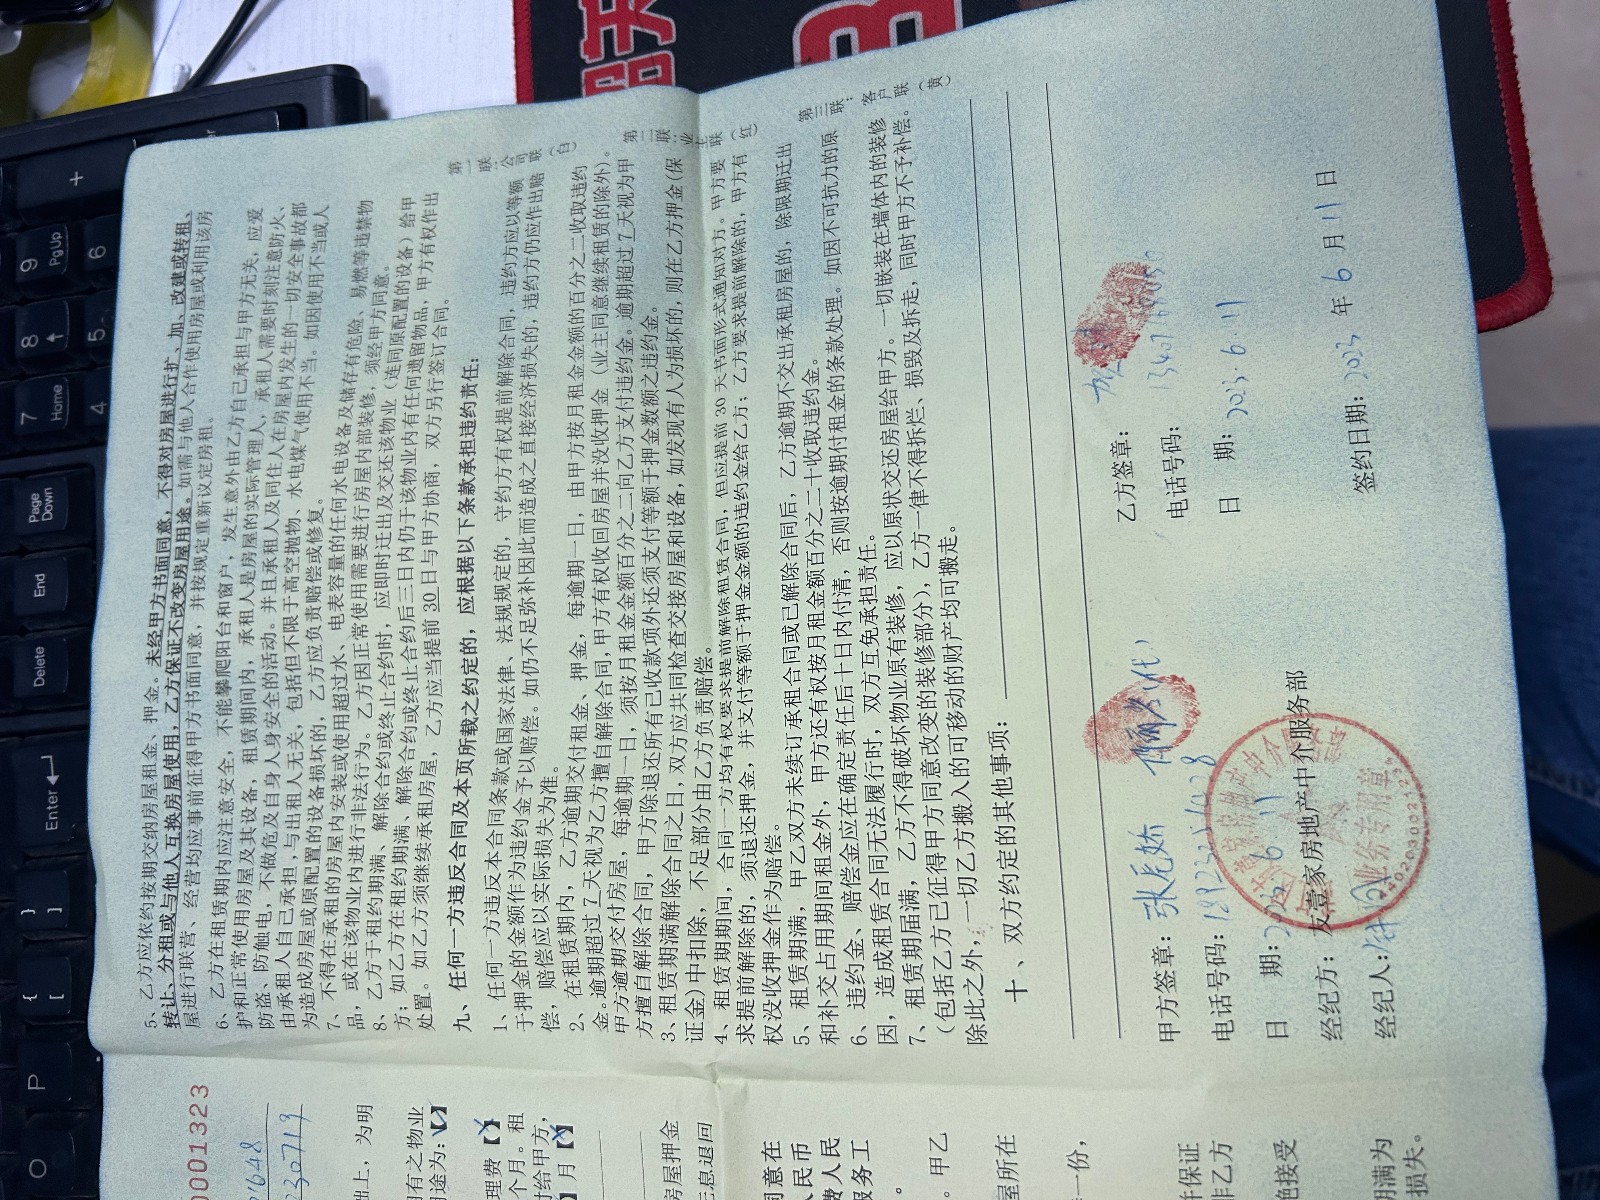 5、乙方应依约按期交纳房屋租金、押金。未经甲方书面同意，不得对房屋进行扩、加、改建或转租、
转让、分租或与他人互换房屋使用，乙方保证不改变房屋用途。如需与他人合作使用房屋或利用该房
屋进行联营、经营均应事前征得甲方书面同意，并按规定重新议定房租。
6、乙方在租赁期内应注意安全，不能攀爬阳台和窗户，发生意外由乙方自己承担与甲方无关，应爱
护和正常使用房屋及其设备，租赁期间内，承租人是房屋的实际管理人，承租人需要时刻注意防火、
防盗、防触电，不做危及自身人身安全的活动。并且承租人及同住人在房屋内发生的一切安全事故都
由承租人自己承担，与出租人无关，包括但不限于高空抛物、水电煤气使用不当。如因使用不当或人
为造成房屋或原配置的设备损坏的，乙方应负责赔偿或修复。
7、不得在承租的房屋内安装或使用超过水、电表容量的任何水电设备及储存有危险、易燃等违禁物
品，或在该物业内进行非法行为。乙方因正常使用需要进行房屋内部装修，须经甲方同意。
8、乙方于租约期满、解除合约或终止合约时，应即时迁出及交还该物业（连同原配置的设备）给甲
方；如乙方在租约期满、解除合约或终止合约后三日内仍于该物业内有任何遗留物品，甲方有权作出
处置。如乙方须继续承租房屋，乙方应当提前 30 日与甲方协商，双方另行签订合同。
九、任何一方违反合同及本页所载之约定的，应根据以下条款承担违约责任：
1、任何一方违反本合同条款或国家法律、法规规定的，守约方有权提前解除合同，违约方应以等额
于押金的金额作为违约金予以赔偿。如仍不足弥补因此而造成之直接经济损失的，违约方仍应作出赔
偿，赔偿应以实际损失为准。
2、在租赁期内，乙方逾期交付租金、押金，每逾期一日，由甲方按月租金金额的百分之二收取违约
金。逾期超过 7 天视为乙方擅自解除合同，甲方有权收回房屋并没收押金（业主同意继续租赁的除外）。
甲方逾期交付房屋，每逾期一日，须按月租金金额百分之二向乙方支付违约金。逾期超过 7 天视为甲
方擅自解除合同，甲方除退还所有已收款项外还须支付等额于押金数额之违约金。
3、租赁期满解除合同之日，双方应共同检查交接房屋和设备，如发现有人为损坏的，则在乙方押金（保
证金）中扣除，不足部分由乙方负责赔偿。
4、租赁期期间，合同一方均有权要求提前解除租赁合同，但应提前 30 天书面形式通知对方。甲方要
求提前解除的，须退还押金，并支付等额于押金金额的违约金给乙方；乙方要求提前解除的，甲方有
权没收押金作为赔偿。
5、租赁期满，甲乙双方未续订承租合同或已解除合同后，乙方逾期不交出承租房屋的，除限期迁出
和补交占用期间租金外，甲方还有权按月租金额百分之二十收取违约金。
6、违约金、赔偿金应在确定责任后十日内付清，否则按逾期付租金的条款处理。如因不可抗力的原
因，造成租赁合同无法履行时，双方互免承担责任。
7、租赁期届满，乙方不得破坏物业原有装修，应以原状交还房屋给甲方。一切嵌装在墙体内的装修
（包括乙方已征得甲方同意改变的装修部分），乙方一律不得拆烂、损毁及拆走，同时甲方不予补偿。
除此之外，一切乙方搬入的可移动的财产均可搬走。
十、双方约定的其他事项：
第一联：公司联（白）
第二联：业主联（红）
第三联：客户联（黄）
甲方签章：
（代）
电话号码：
日 期：
经纪方： 友壹家房地产中介服务部
经纪人：
业务专用章
乙方签章：
电话号码：
日 期：2023.6.11
签约日期：2023 年 6 月 11 日
0001323
230719
础上，为明
理费
个月。租
付给甲方，
月
房屋押金
无息退回
同意在
人民币
费人民
服务工
甲乙
屋所在
一份，
并保证
非乙方
绝接受
期满为
损失。